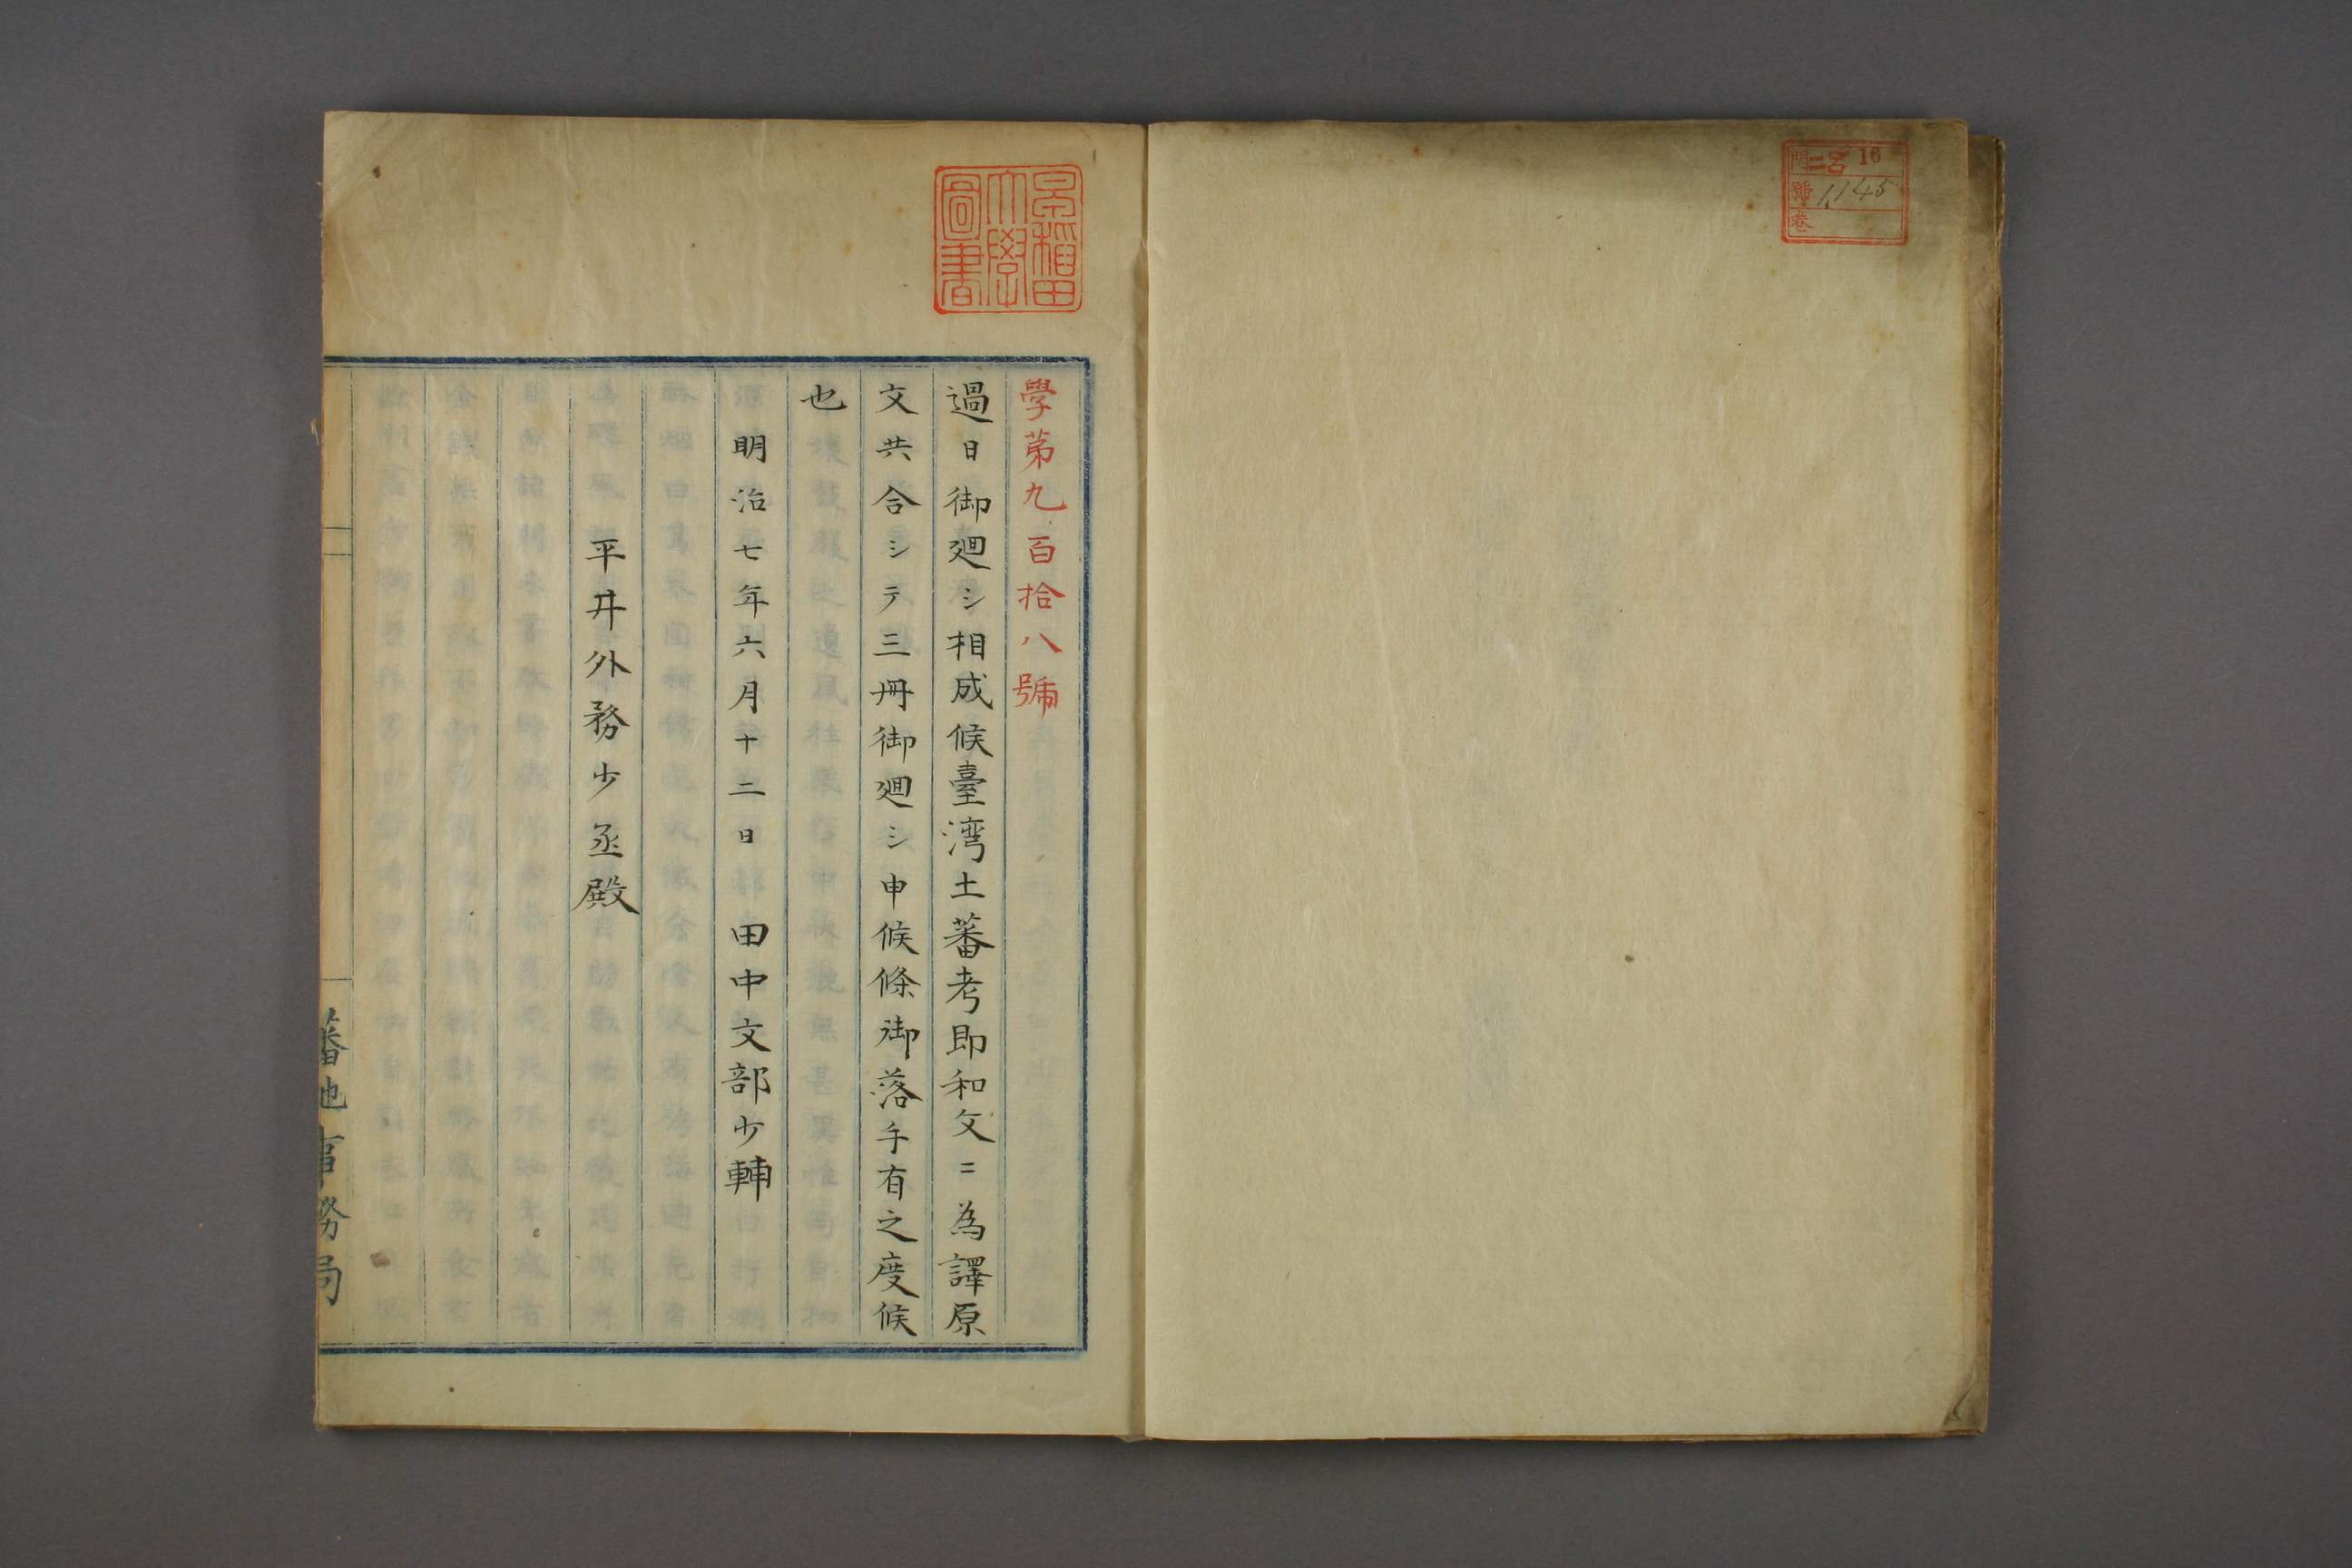 門 二呂 16
號 1145
卷
早稲田
大學
圖書
學第九百拾八號
過日御廻シ相成候臺湾土蕃考即和文ニ為譯原
文共合シテ三冊御廻シ申候條御落手有之度候
也
明治七年六月十二日 田中文部少輔
平井外務少丞殿
蕃地事務局